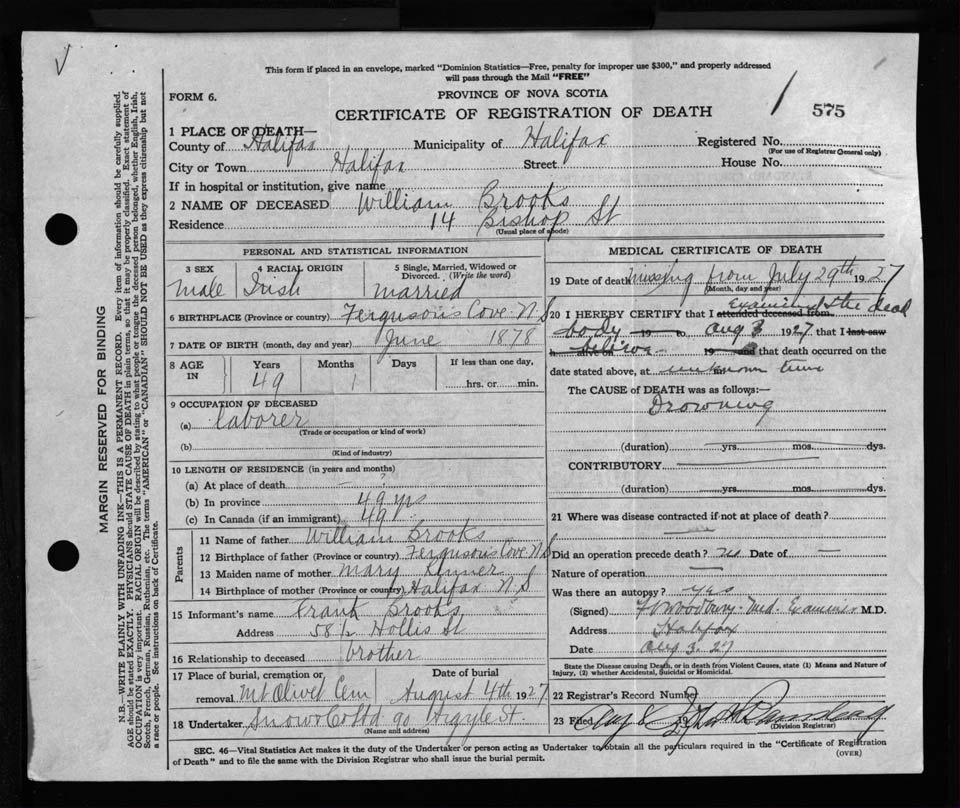 This form if placed in an envelope, marked "Dominion Statistics—Free, penalty for improper use $300," and properly addressed
will pass through the Mail "FREE"
FORM 6.
PROVINCE OF NOVA SCOTIA
CERTIFICATE OF REGISTRATION OF DEATH
575
1 PLACE OF DEATH—
County of Halifax Municipality of Halifax Registered No.
(For use of Registrar General only)
City or Town Halifax Street House No.
If in hospital or institution, give name
2 NAME OF DECEASED William Brooks
Residence 14 Bishop St
(Usual place of abode)
PERSONAL AND STATISTICAL INFORMATION
3 SEX 4 RACIAL ORIGIN 5 Single, Married, Widowed or Divorced. (Write the word)
Male Irish married
6 BIRTHPLACE (Province or country) Ferguson's Cove N.S
7 DATE OF BIRTH (month, day and year) June 1878
8 AGE IN Years Months Days If less than one day,
49 1 hrs. or min.
9 OCCUPATION OF DECEASED
(a) laborer
(Trade or occupation or kind of work)
(b)
(Kind of industry)
10 LENGTH OF RESIDENCE (in years and months)
(a) At place of death — ?
(b) In province 49 yrs
(c) In Canada (if an immigrant) 49
Parents
11 Name of father William Brooks
12 Birthplace of father (Province or country) Ferguson's Cove N.S
13 Maiden name of mother Mary
14 Birthplace of mother (Province or country) Halifax N.S
15 Informant's name Frank Brooks
Address 58½ Hollis St
16 Relationship to deceased brother
17 Place of burial, cremation or removal Date of burial
Mt Olivet Cem August 4th 1927
18 Undertaker Snow Co Ltd 90 Argyle St.
(Name and address)
MEDICAL CERTIFICATE OF DEATH
19 Date of death missing from July 29th 1927
(Month, day and year)
20 I HEREBY CERTIFY that I attended deceased from Examined the dead
body 19 to Aug 3 1927, that I last saw
h alive on 19 and that death occurred on the
date stated above, at unknown time
The CAUSE of DEATH was as follows:—
Drowning
(duration) yrs. mos. dys.
CONTRIBUTORY
(duration) yrs. mos. dys.
21 Where was disease contracted if not at place of death?
Did an operation precede death? no Date of —
Nature of operation —
Was there an autopsy? yes
(Signed) Woodbury - Med. Examiner M.D.
Address Halifax
Date Aug 3. 27
State the Disease causing Death, or in death from Violent Causes, state (1) Means and Nature of
Injury, (2) whether Accidental, Suicidal or Homicidal.
22 Registrar's Record Number
23 Filed Aug 8 19
(Division Registrar)
SEC. 46—Vital Statistics Act makes it the duty of the Undertaker or person acting as Undertaker to obtain all the particulars required in the "Certificate of Registration
of Death" and to file the same with the Division Registrar who shall issue the burial permit.
(OVER)
MARGIN RESERVED FOR BINDING
N.B.—WRITE PLAINLY WITH UNFADING INK—THIS IS A PERMANENT RECORD. Every item of information should be carefully supplied.
AGE should be stated EXACTLY. PHYSICIANS should STATE CAUSE OF DEATH in plain terms, so that it may be properly classified. Exact statement of
OCCUPATION is very important. RACIAL ORIGIN will be described by stating to what people or tongue the deceased person belonged, whether English, Irish,
Scotch, French, German, Russian, Ruthenian, etc. The terms "AMERICAN" or "CANADIAN" SHOULD NOT BE USED as they express citizenship but not
a race or people. See instructions on back of Certificate.